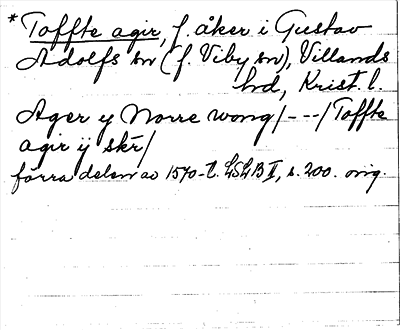 * Toffte agir, f. åker i Gustav
Adolfs sn (f. Viby sn), Villands
hd, Krist. l.
Ager y Norre wong/---/Toffte
agir ÿ skr/
förra delen av 1570-t. LSLB II, s. 200. orig.